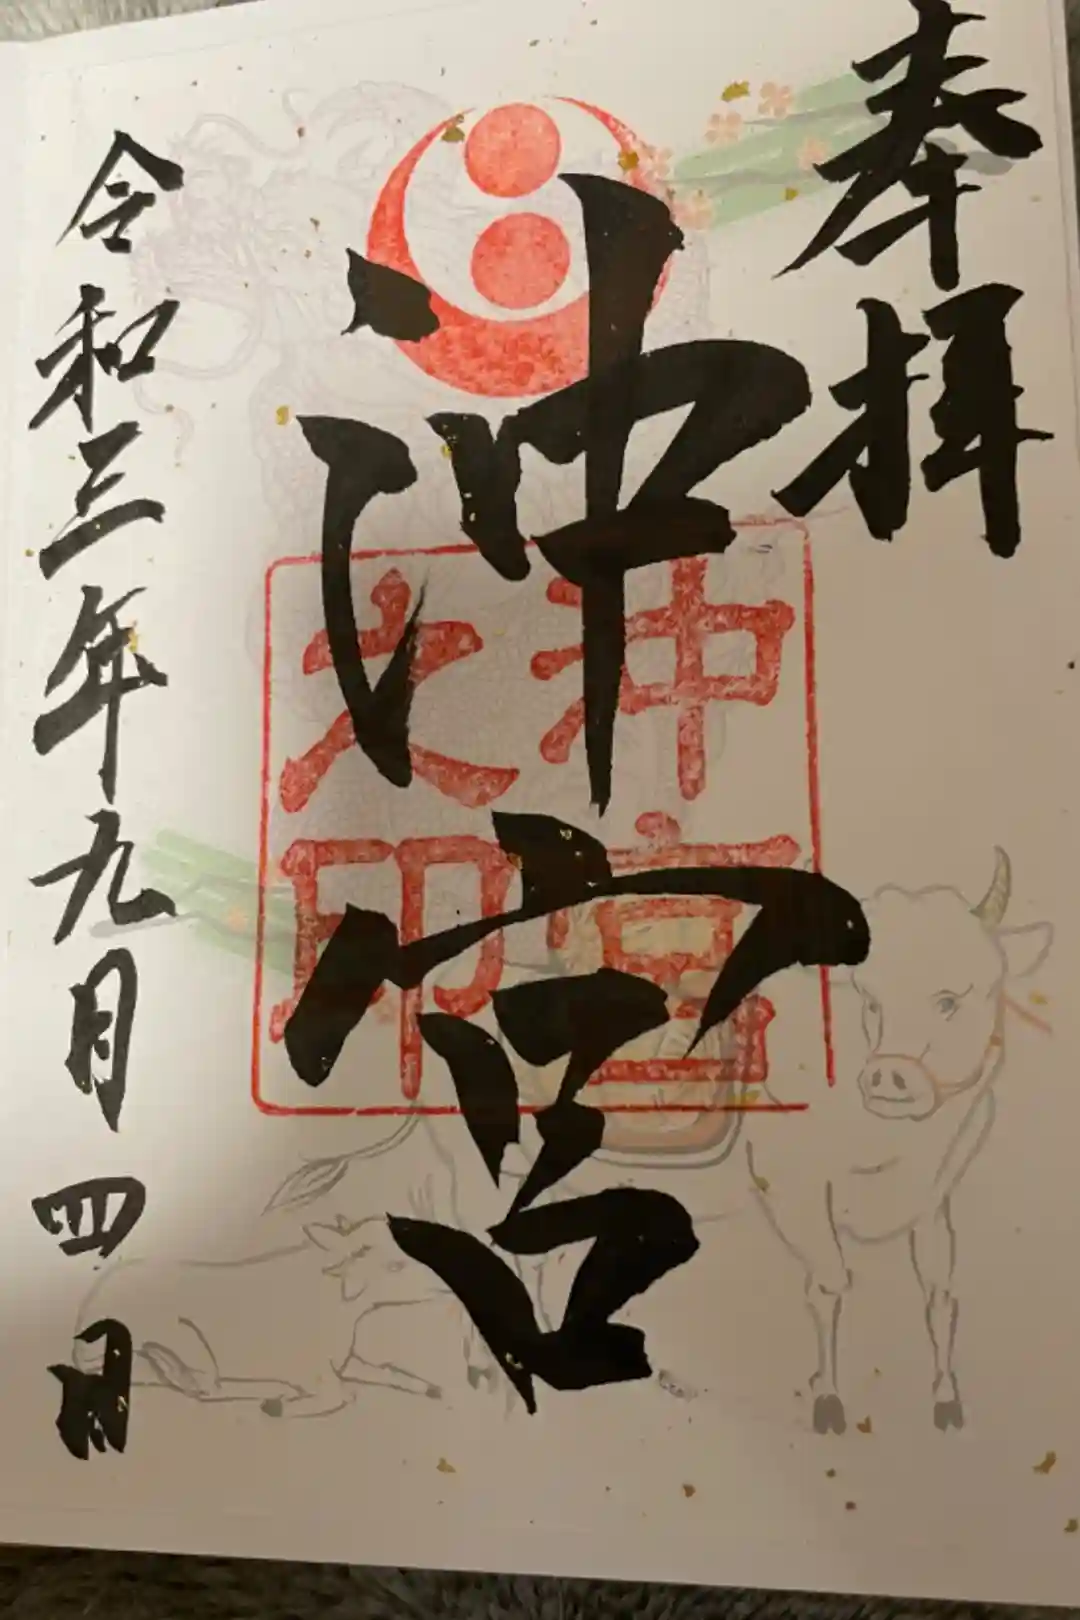 奉拝
沖宮
沖宮
之印
令和三年九月四日